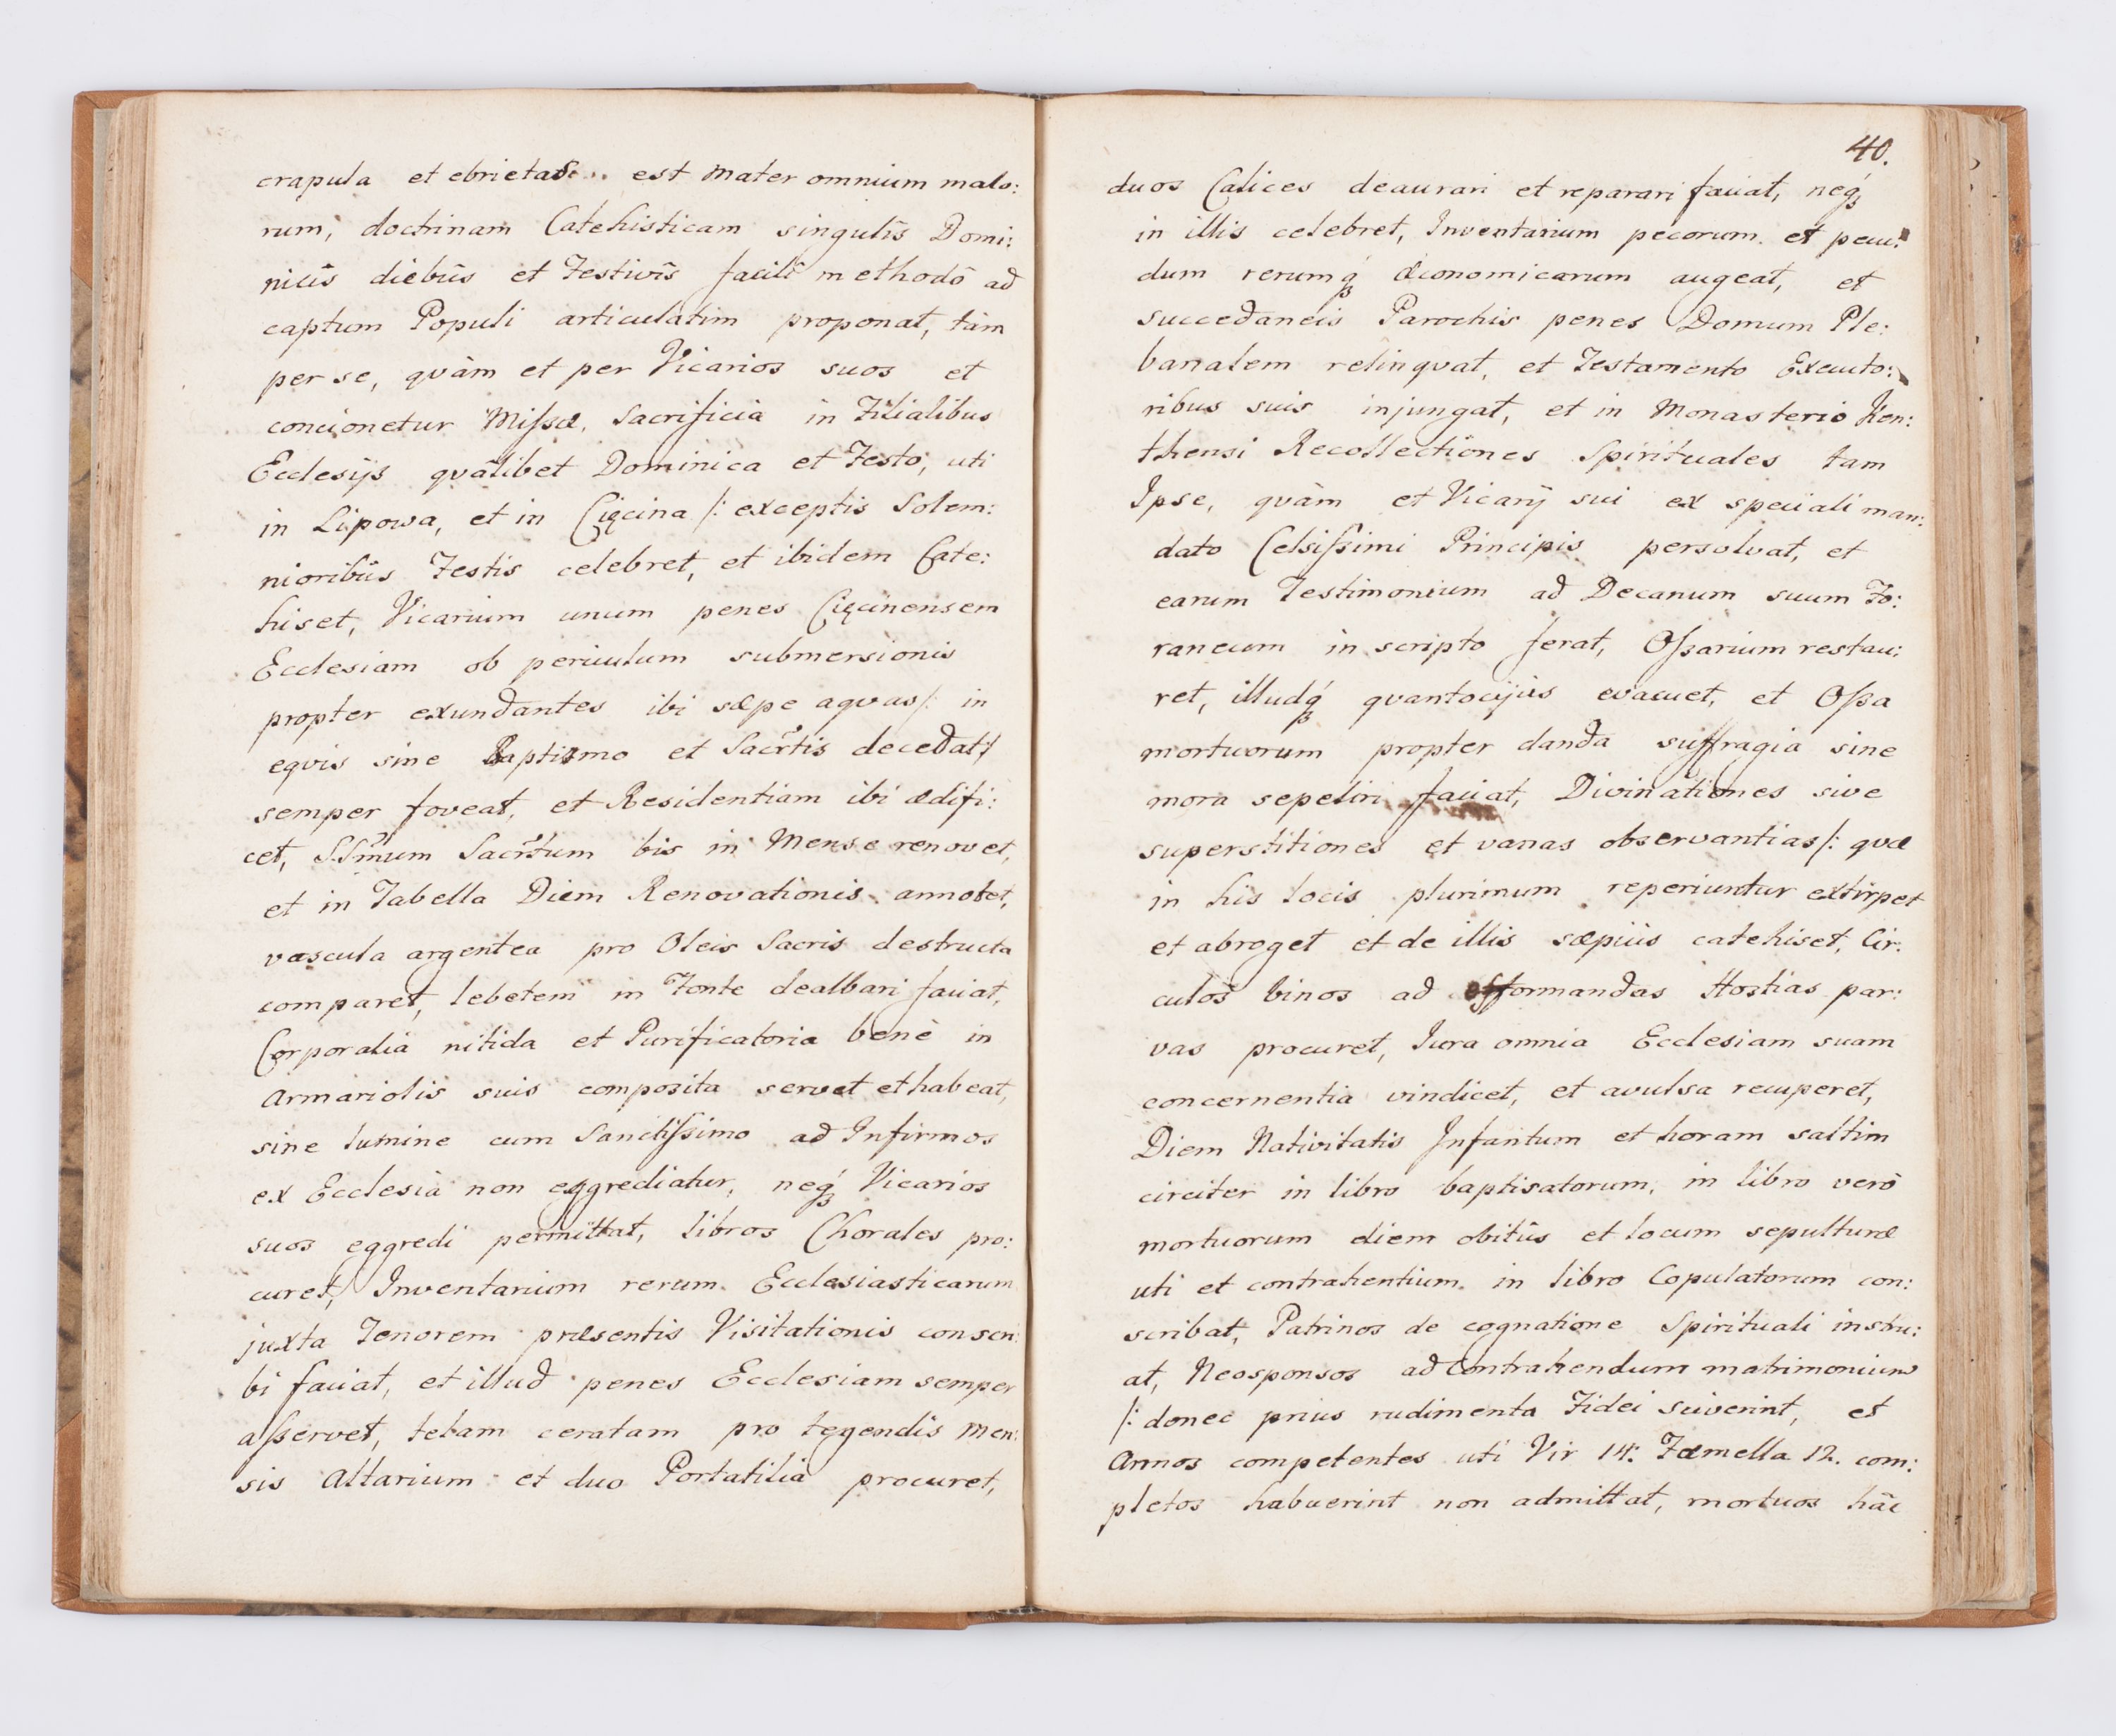 crapula et ebrietas... est Mater omnium malo:
rum, doctrinam Catehisticam singulis Domi:
nicis diebus et Festivis facili methodô ad
captum Populi articulatim proponat, tàm
per se, qvàm et per Vicarios suos et
concionetur Missæ, Sacrificia in Filialibus
Ecclesijs qvâlibet Dominica et Festo, uti
in Lipowa, et in Cięcina /: exceptis Solem:
nioribus Festis celebret, et ibidem Cate:
hiset, Vicarium unum penes Cięcinensem
Ecclesiam ob periculum submersionis
propter exundantes ibi sæpe aqvas/: in
eqvis sine Baptismo et Sacrtis decedat/
semper foveat, et Residentiam ibi ædifi:
cet, SSmum Sacrtum bis in Mense renovet,
et in Tabella Diem Renovationis annotet,
vascula argentea pro Oleis Sacris destructa
comparet, lebetem in Fonte dealbari faciat,
Corporalia nitida et Purificatoria benè in
Armariolis suis composita servet et habeat,
sine lumine cum Sanctissimo ad Infirmos
ex Ecclesia non eggrediatur, neqȝ Vicarios
suos eggredi permittat, libros Chorales pro:
curet, Inventarium rerum Ecclesiasticarum
juxta Tenorem præsentis Visitationis conscri:
bi faciat, et illud penes Ecclesiam semper
asservet, telam ceratam pro tegendis Men:
sis Altarium et duo Portatilia procuret,
40.
duos Calices deaurari et reparari faciat, neqȝ
in illis celebret, Inventarium pecorum et pecu:
dum rerumqȝ Œconomicarum augeat, et
succedaneis Parochis penes Domum Ple:
banalem relinqvat, et Testamento Executo:
ribus suis injungat, et in Monasterio Ken:
thensi Recollectiones Spirituales tam
Ipse, qvàm et Vicarij sui ex speciali man:
dato Celsissimi Principis persolvat, et
earum Testimonium ad Decanum suum Fo:
raneum in scripto ferat, Ossarium restau:
ret, illudqȝ qvantocijus evacuet, et Ossa
mortuorum propter danda suffragia sine
mora sepeliri faciat, Divinationes sive
superstitiones et vanas observantias/: qvæ
in his locis plurimum reperiuntur extirpet
et abroget et de illis sæpiùs catehiset, Cir:
culos binos ad efformandas Hostias par:
vas procuret, Jura omnia Ecclesiam suam
concernentia vindicet, et avulsa recuperet,
Diem Nativitatis Infantum et horam saltim
circiter in libro baptisatorum, in libro verò
mortuorum diem obitûs et locum sepulturæ
uti et contrahentium in libro Copulatorum con:
scribat, Patrinos de cognatione Spirituali instru:
at, Neosponsos ad Contrahendum matrimonium
/: donec prius rudimenta Fidei sciverint, et
Annos competentes uti Vir 14. Fæmella 12. com:
pletos habuerint non admittat, mortuos hâc